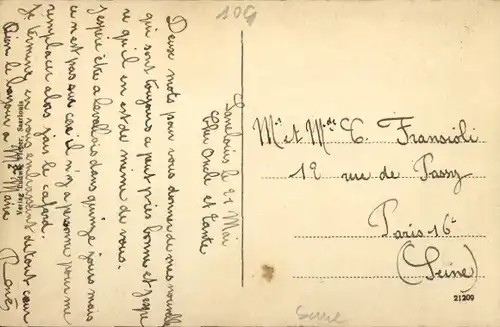 10G
Sarrelouis le 21 Mai
Cher Oncle et Tante
Deux mots pour vous donner de mes nouvelles
qui sont toujours a peut près bonne et j'espère
qu'il en est de même de vous.
J'espère être a levallois dans quinze jours mais
ce n'est pas sur car il n'y a personne pour me
remplacer alors j'ai le cafard.
Je termine en vous embrassant de tout cœur
Bien le bonjour a Mme Marie
René
Mr et Mme C. Fransioli
12 rue de Passy
Paris 16e
(Seine)
21209
Seine